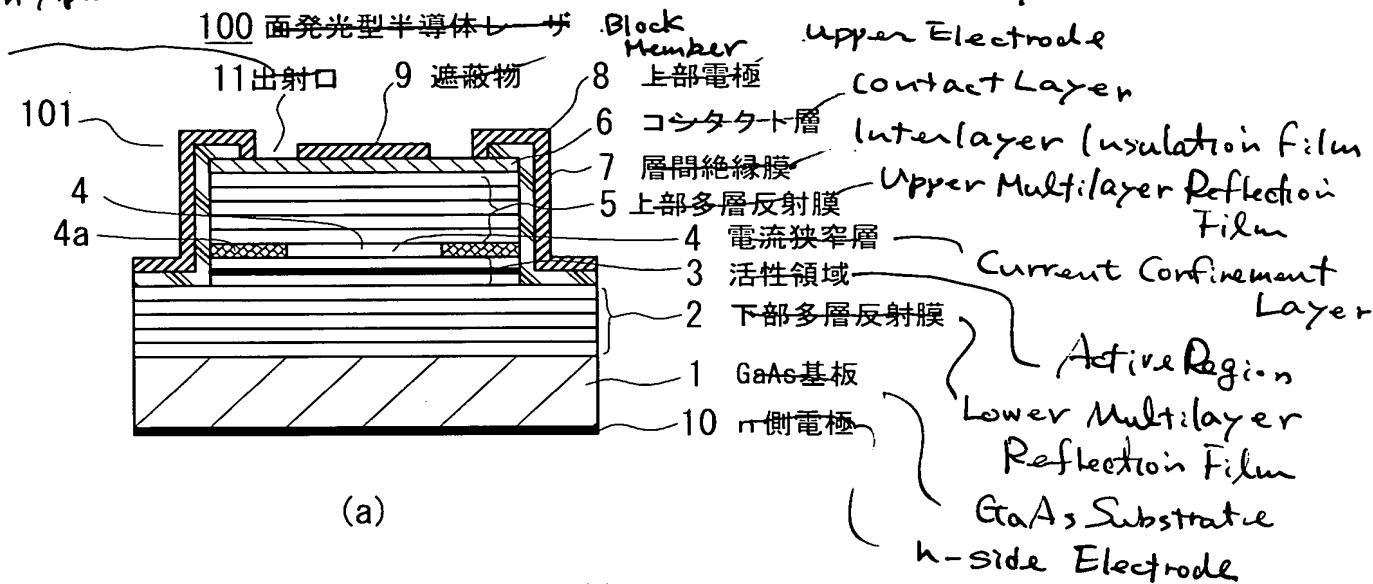 100 面発光型半導体レーザ Block Member Upper Electrode
11出射口 9 遮蔽物 8 上部電極 Contact Layer
101 6 コンタクト層 Interlayer Insulation Film
7 層間絶縁膜 Upper Multilayer Reflection Film
4 5 上部多層反射膜
4a 4 電流狭窄層 Current Confinement Layer
3 活性領域
2 下部多層反射膜 Active Region
1 GaAs基板 Lower Multilayer Reflection Film
10 n側電極
(a) GaAs Substrate
n-side Electrode